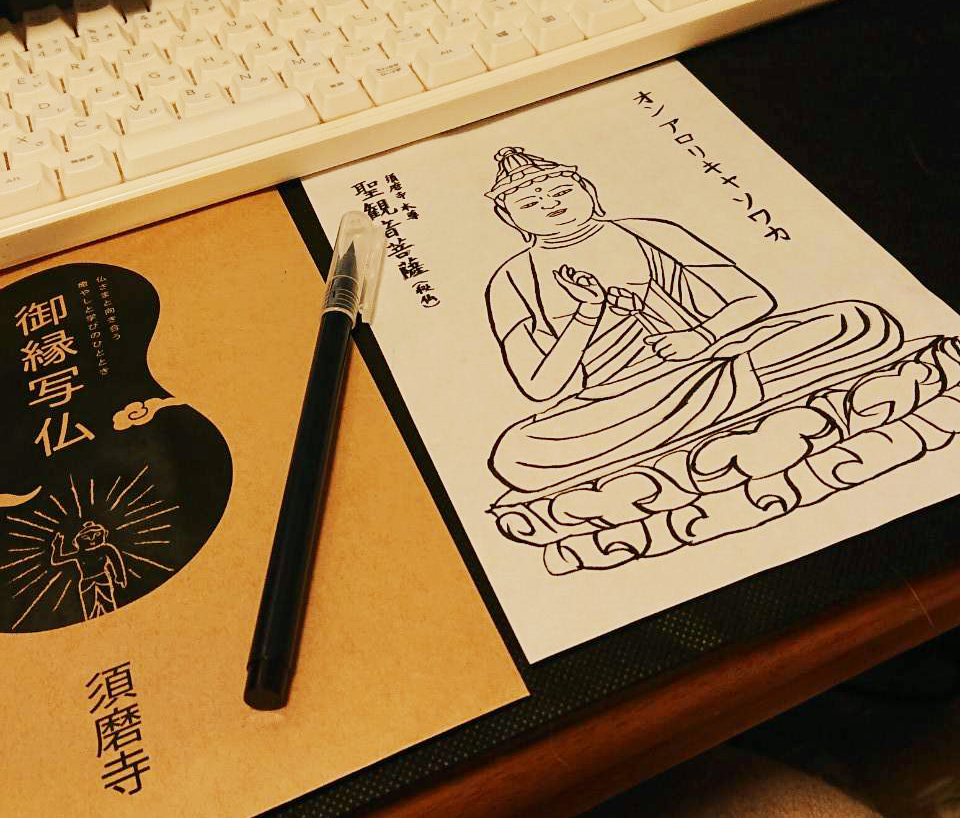 オンアロリキャソワカ
須磨寺 本尊
聖観音菩薩(秘仏)
仏さまと向き合う
癒やしと学びのひととき
御縁写仏
須磨寺